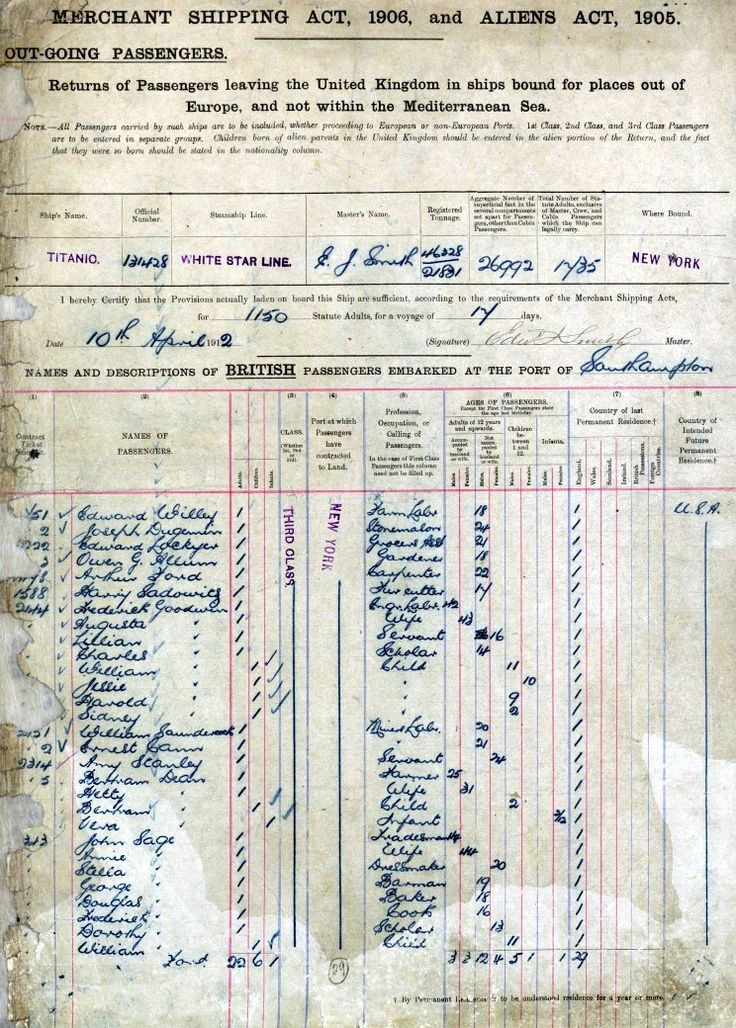 MERCHANT SHIPPING ACT, 1906, and ALIENS ACT, 1905.
OUT-GOING PASSENGERS.
Returns of Passengers leaving the United Kingdom in ships bound for places out of
Europe, and not within the Mediterranean Sea.
NOTE.—All Passengers carried by such ships are to be included, whether proceeding to European or non-European Ports. 1st Class, 2nd Class, and 3rd Class Passengers
are to be entered in separate groups. Children born of alien parents in the United Kingdom should be entered in the alien portion of the Return, and the fact
that they were so born should be stated in the nationality column.
Ship's Name. Official Number. Steamship Line. Master's Name. Registered Tonnage. Aggregate Number of superficial feet in the several compartments set apart for Passengers, other than Cabin Passengers. Total Number of Statute Adults, exclusive of Master, Crew, and Cabin Passengers which the Ship can legally carry. Where Bound.
TITANIC. 131428 WHITE STAR LINE. E. J. Smith 46328 21831 26992 1735 NEW YORK
I hereby Certify that the Provisions actually laden on board this Ship are sufficient, according to the requirements of the Merchant Shipping Acts,
for 1150 Statute Adults, for a voyage of 17 days.
Date 10th April 1912 (Signature) Edw J Smith Master.
NAMES AND DESCRIPTIONS OF BRITISH PASSENGERS EMBARKED AT THE PORT OF Southampton
(1) (2) (3) (4) (5) (6) (7) (8)
Contract Ticket Number. NAMES OF PASSENGERS. Adults. Children. Infants. CLASS. (Whether 1st, 2nd or 3rd). Port at which Passengers have contracted to Land. Profession, Occupation, or Calling of Passengers. In the case of First Class Passengers this column need not be filled up. AGES OF PASSENGERS. Except for First Class Passengers state the age last birthday. Adults of 12 years and upwards. Accompanied by husband or wife. Not accompanied by husband or wife. Children between 1 and 12. Infants. Males Females Males Females Males Females Males Females Country of last Permanent Residence.† England. Wales. Scotland. Ireland. British Possessions. Foreign Countries. Country of Intended Future Permanent Residence.†
THIRD CLASS
NEW YORK
151 Edward Willey 1 Farm Labr 18 1 U.S.A.
2 Joseph 1 Stonemason 24 1
Edward Lockyer 1 Grocers Asst 21 1
3 Owen G. Allum 1 Gardener 18 1
Arthur Ford 1 Carpenter 22 1
1588 Harry Sadowitz 1 Fur cutter 17 1
2144 Frederick Goodwin 1 Engr. Labr. 42 1
" Augusta " 1 Wife 43 1
" Lillian " 1 Servant 16 1
" Charles " 1 Scholar 14 1
" William " 1 Child 11 1
" Jessie " 1 " 10 1
" Harold " 1 " 9 1
" Sidney " 1 " 2 1
2151 William Saundercock 1 Miners Labr. 20 1
2 Ernest Cann 1 " 21 1
2314 Amy Stanley 1 Servant 24 1
5 Bertram Dean 1 Farmer 25 1
" Hetty " 1 Wife 31 1
" Bertram " 1 Child 2 1
" Vera " 1 Infant 1
343 John Sage 1 Tradesman 44 1
" Annie " 1 Wife 44 1
" Stella " 1 Dressmaker 20 1
" George " 1 Barman 19 1
" Douglas " 1 Baker 18 1
" Frederick " 1 Cook 16 1
" Dorothy " 1 Scholar 13 1
" William " 1 Child 11 1
Ford. 22 6 1 29 3 3 12 4 5 1 1 29
† By Permanent Residence is to be understood residence for a year or more.